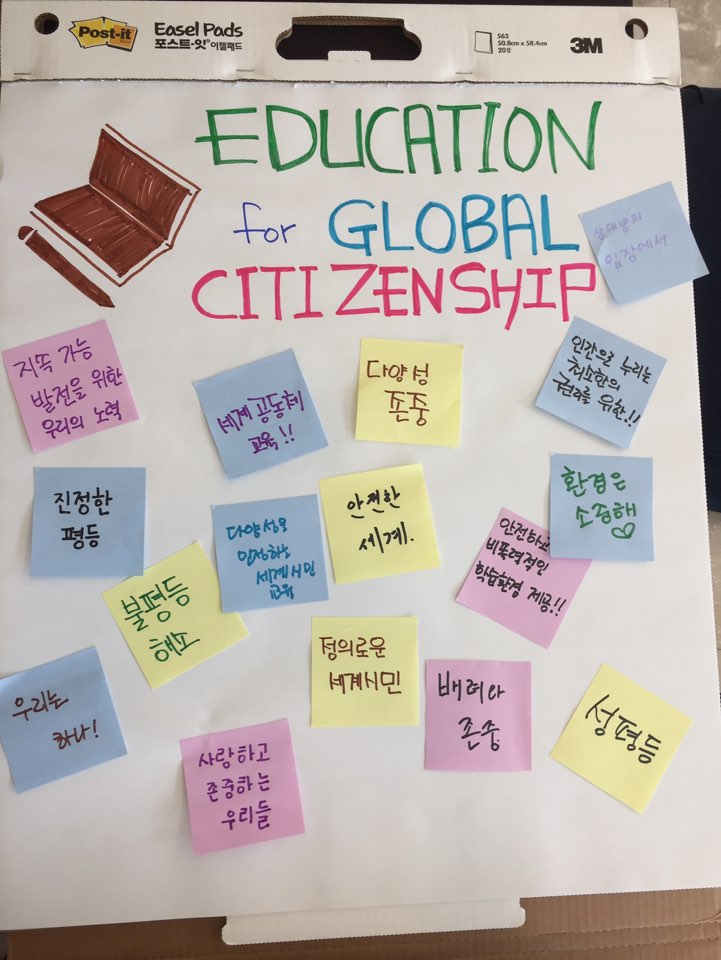 Post-it
Easel Pads
포스트-잇 이젤패드
563
50.8cm x 58.4cm
20장
3M
EDUCATION
for GLOBAL
CITIZENSHIP
상대방의
입장에서
지속 가능
발전을 위한
우리의 노력
세계 공동체
교육!!
다양성
존중
인간으로 누리는
최소한의
권리를 위한!!
진정한
평등
다양성을
인정하는
세계시민
교육
안전한
세계.
환경은
소중해♡
안전하고
비폭력적인
학습환경 제공!!
불평등
해소
우리는
하나!
정의로운
세계시민
배려와
존중
성평등
사랑하고
존중하는
우리들